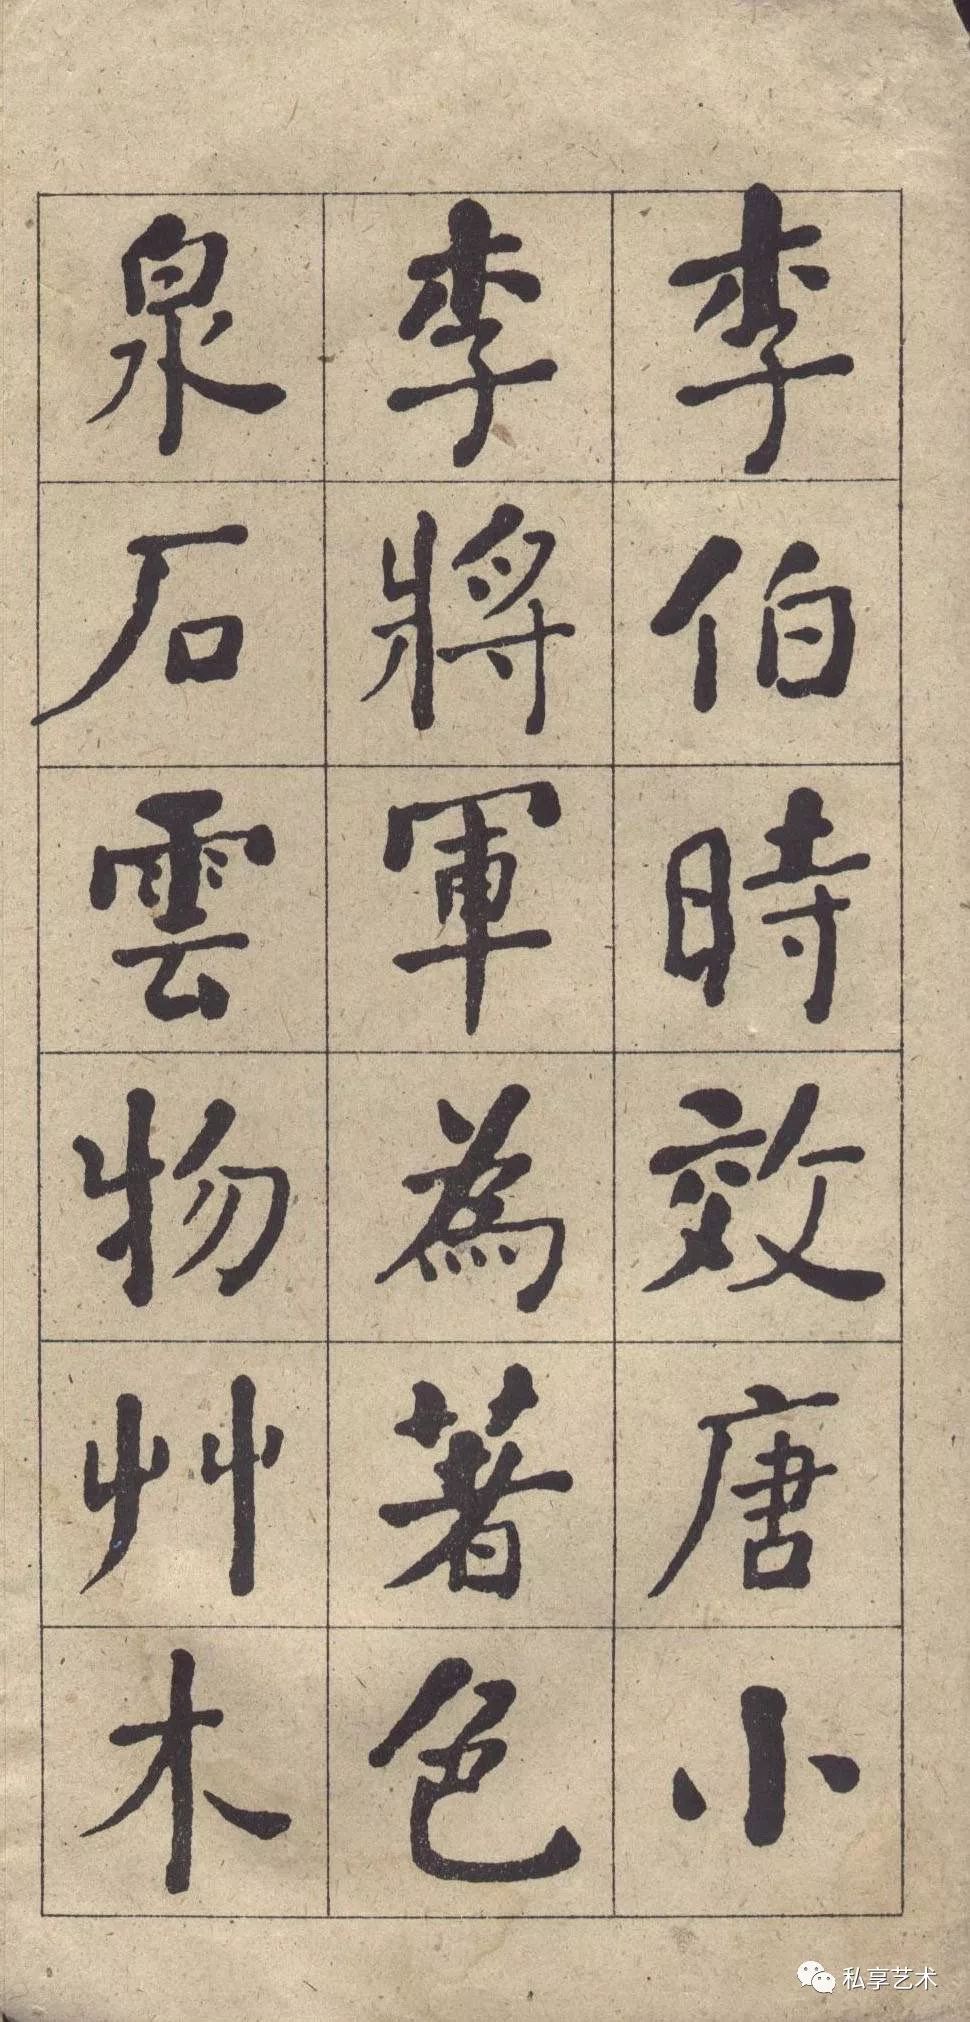 李伯時效唐小
李將軍為著色
泉石雲物艸木
私享艺术